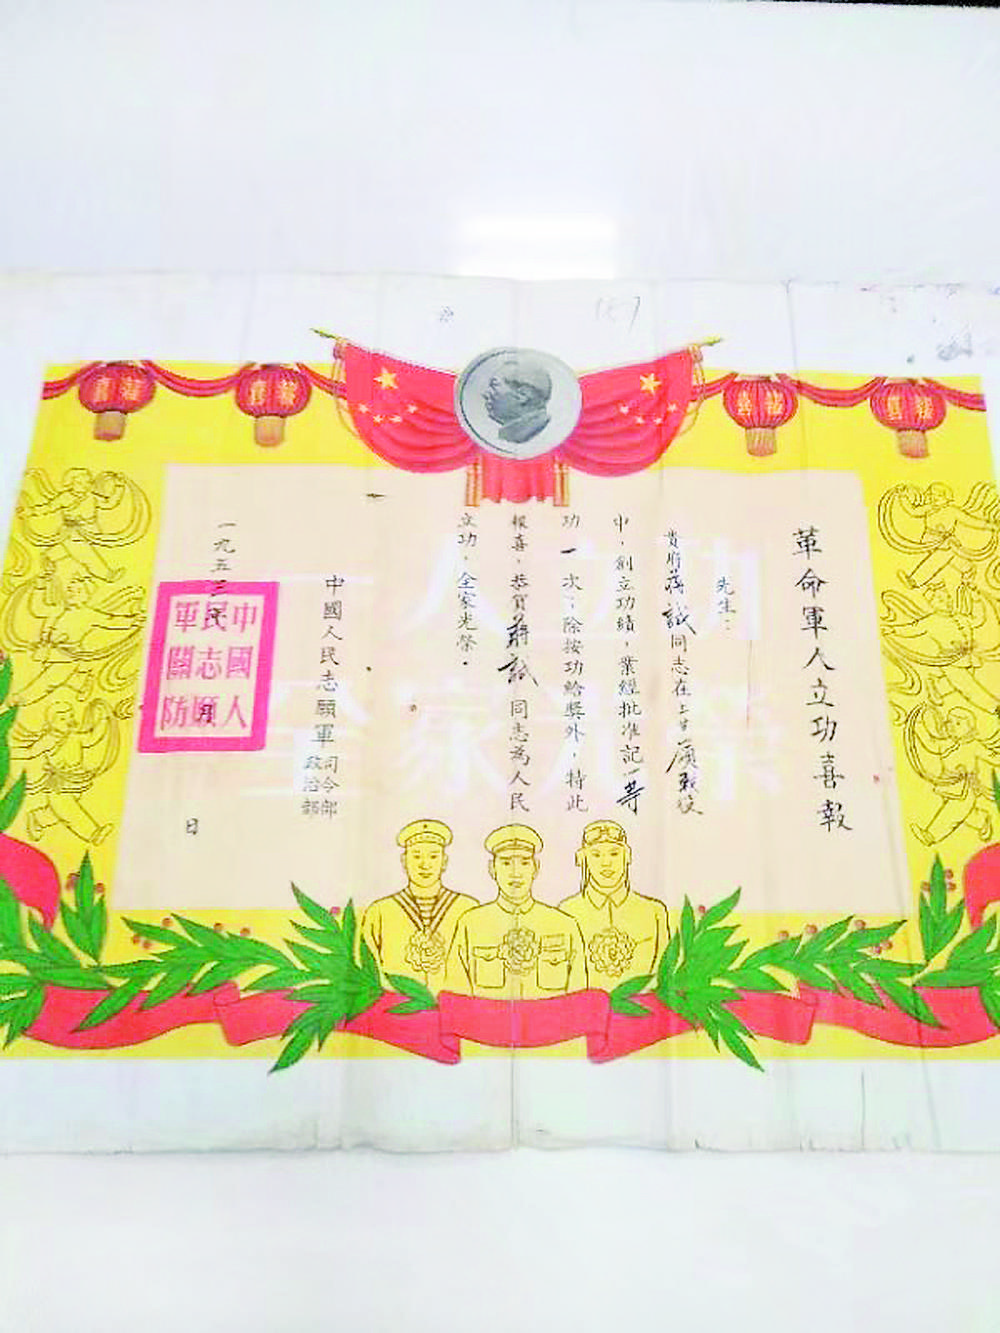 革命軍人立功喜報
先生：
貴府蔣誠同志在上甘嶺戰役
中，創立功績，業經批准記一等
功一次；除按功給獎外，特此
報喜，恭賀蔣誠同志為人民
立功，全家光榮。
中國人民志願軍司令部
政治部
一九五三年
月
日
中國人
民志願
軍關防
一人立功
全家光榮